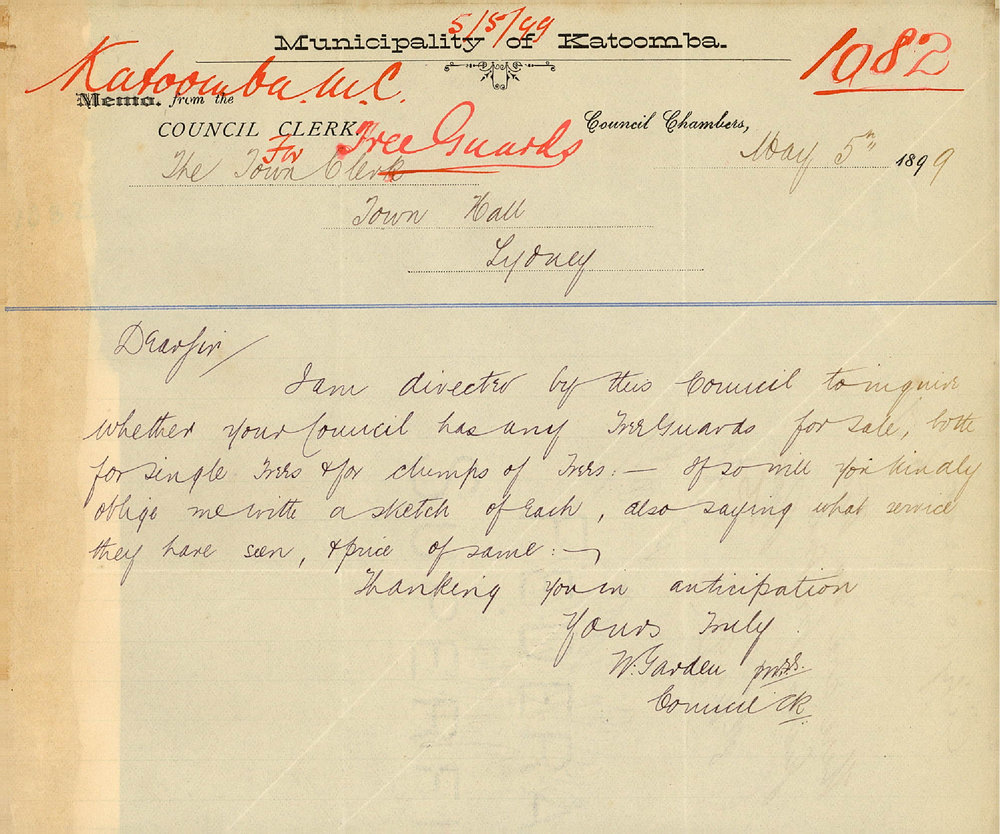 5/5/99
Municipality of Katoomba.
Katoomba. M.C.
1982
Memo. from the
COUNCIL CLERK
For Tree Guards
Council Chambers,
The Town Clerk
May 5th 1899
Town Hall
Sydney
Dear Sir/
I am directed by this Council to inquire
whether your Council has any Tree Guards for sale, both
for single Trees & for clumps of Trees:— If so will you kindly
oblige me with a sketch of Each, also saying what service
they have seen, & price of same:—
Thanking you in anticipation
Yours Truly
W. Garden
Council Ck